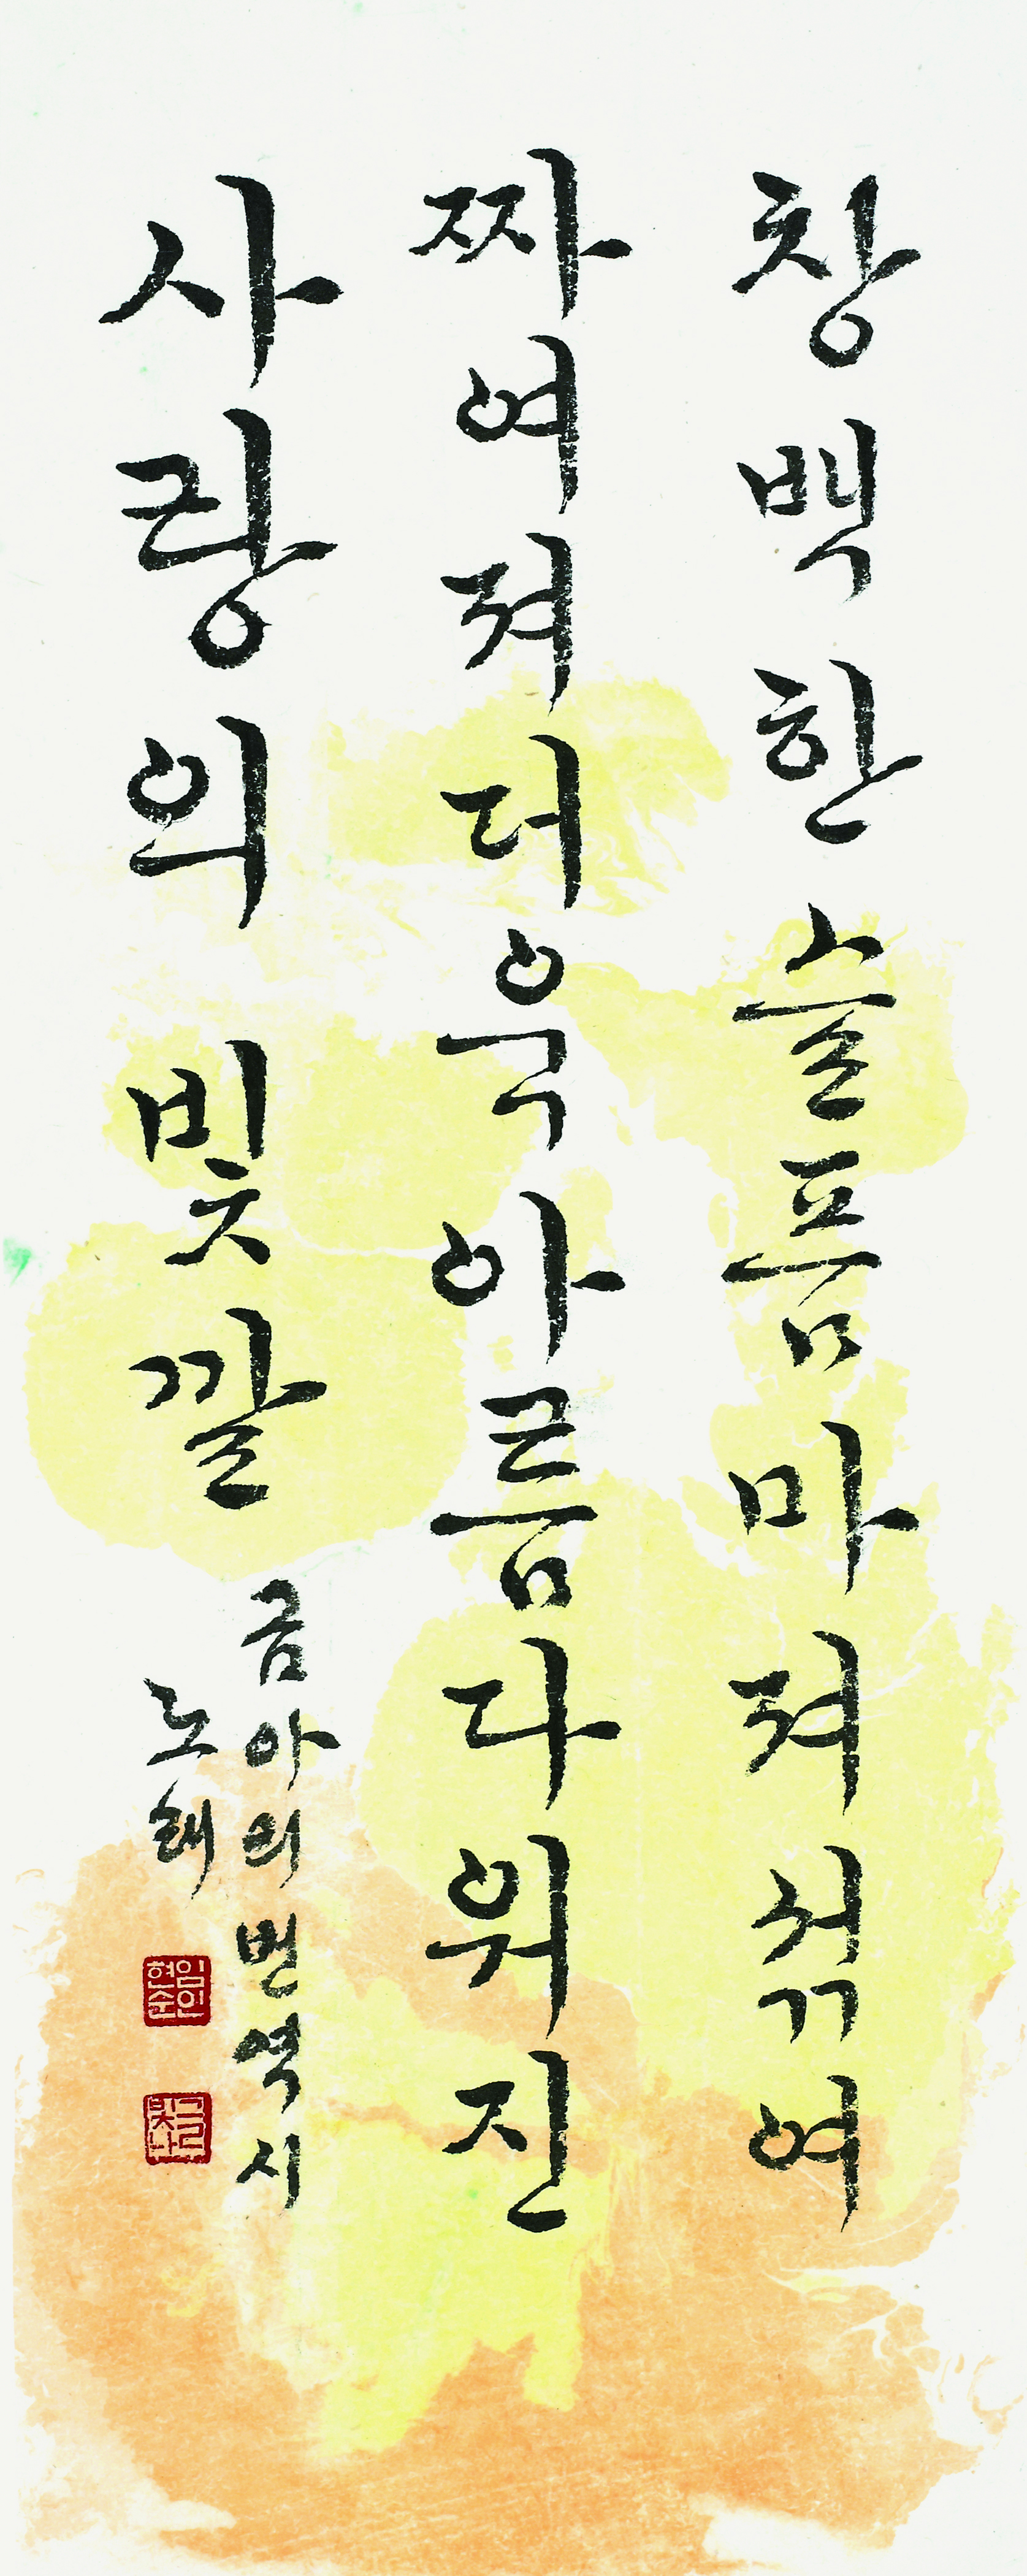 창백한 슬픔마져 섞여
짜여져 더욱 아름다워진
사랑의 빛깔
금아의 번역시
노래
임인
현순